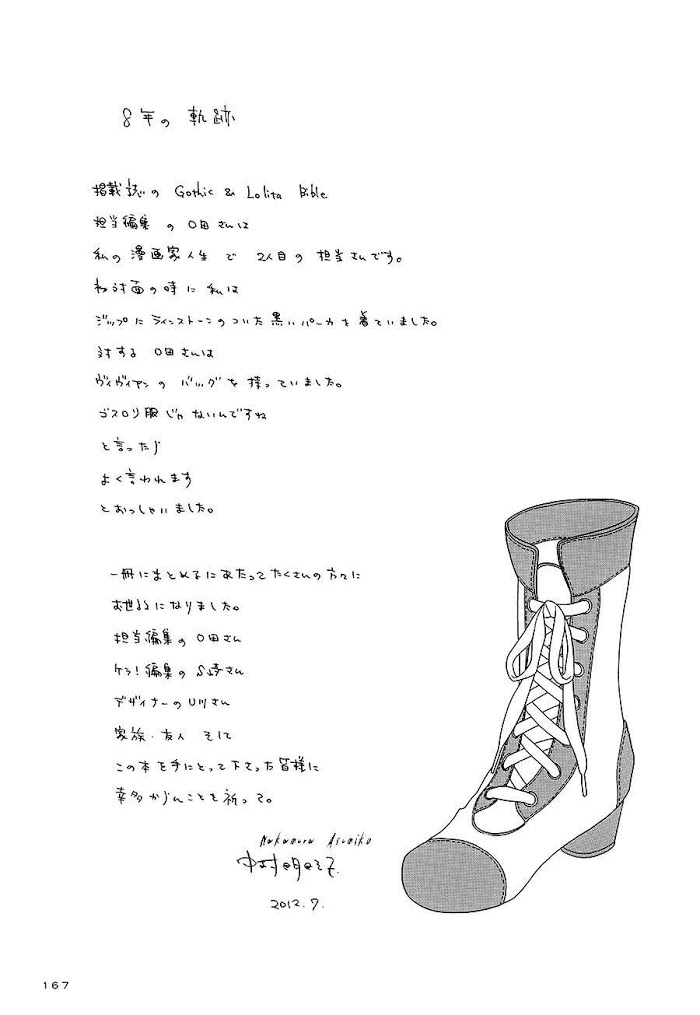 8年の軌跡
掲載誌の Gothic & Lolita Bible
担当編集の O田さんは
私の漫画家人生で 2人目の担当さんです。
初対面の時に私は
ジップにラインストーンのついた黒いパーカを着ていました。
対するO田さんは
ヴィヴィアンのバッグを持っていました。
ゴスロリ服じゃないんですね
と言ったら
よく言われます
とおっしゃいました。
一冊にまとめるにあたってたくさんの方々に
お世話になりました。
担当編集のO田さん
ケラ!編集のS崎さん
デザイナーのU川さん
家族・友人 そして
この本を手にとって下さった皆様に
幸多からんことを祈って。
Nakamura Asumiko
中村明日美子
2012.7.
167